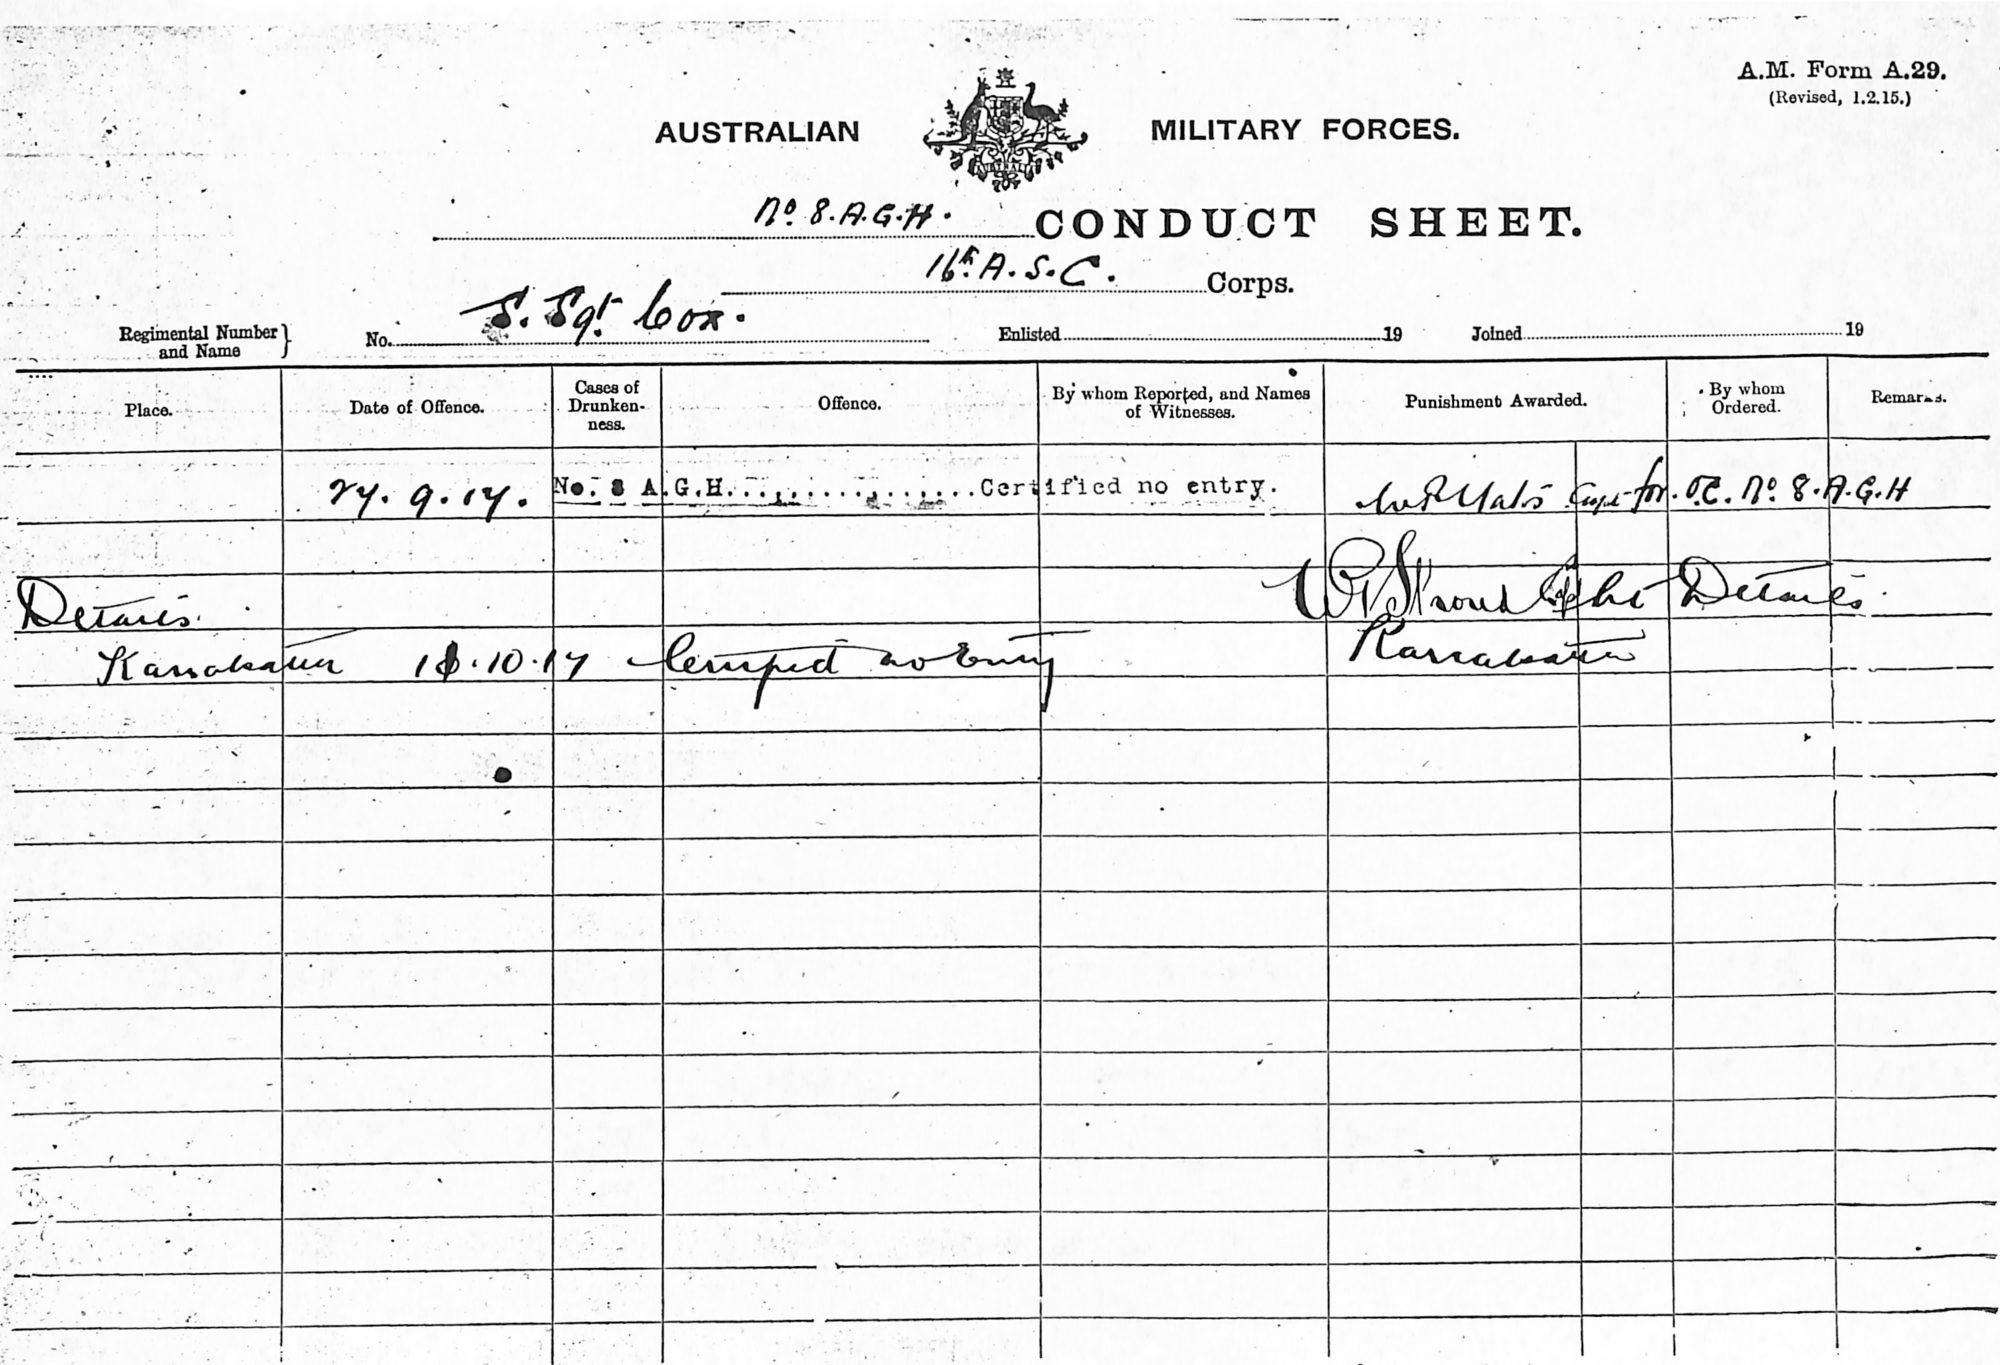 A.M. Form A.29.
(Revised, 1.2.15.)
AUSTRALIAN MILITARY FORCES.
AUSTRALIA
No 8. A.G.H. CONDUCT SHEET.
16th A.S.C. Corps.
Regimental Number and Name } No. S. Sgt Cox. Enlisted 19 Joined 19
Place. Date of Offence. Cases of Drunken-ness. Offence. By whom Reported, and Names of Witnesses. Punishment Awarded. By whom Ordered. Remarks.
27. 9. 17. No. 8 A.G.H. Certified no entry. Capt for O.C. No. 8. A.G.H
Details. Details
Karrakatta 10.10.17 no Entry Karrakatta